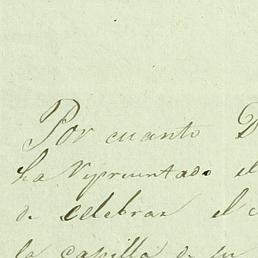 Por cuanto D
ha representado el
de celebrar el
la capilla de su